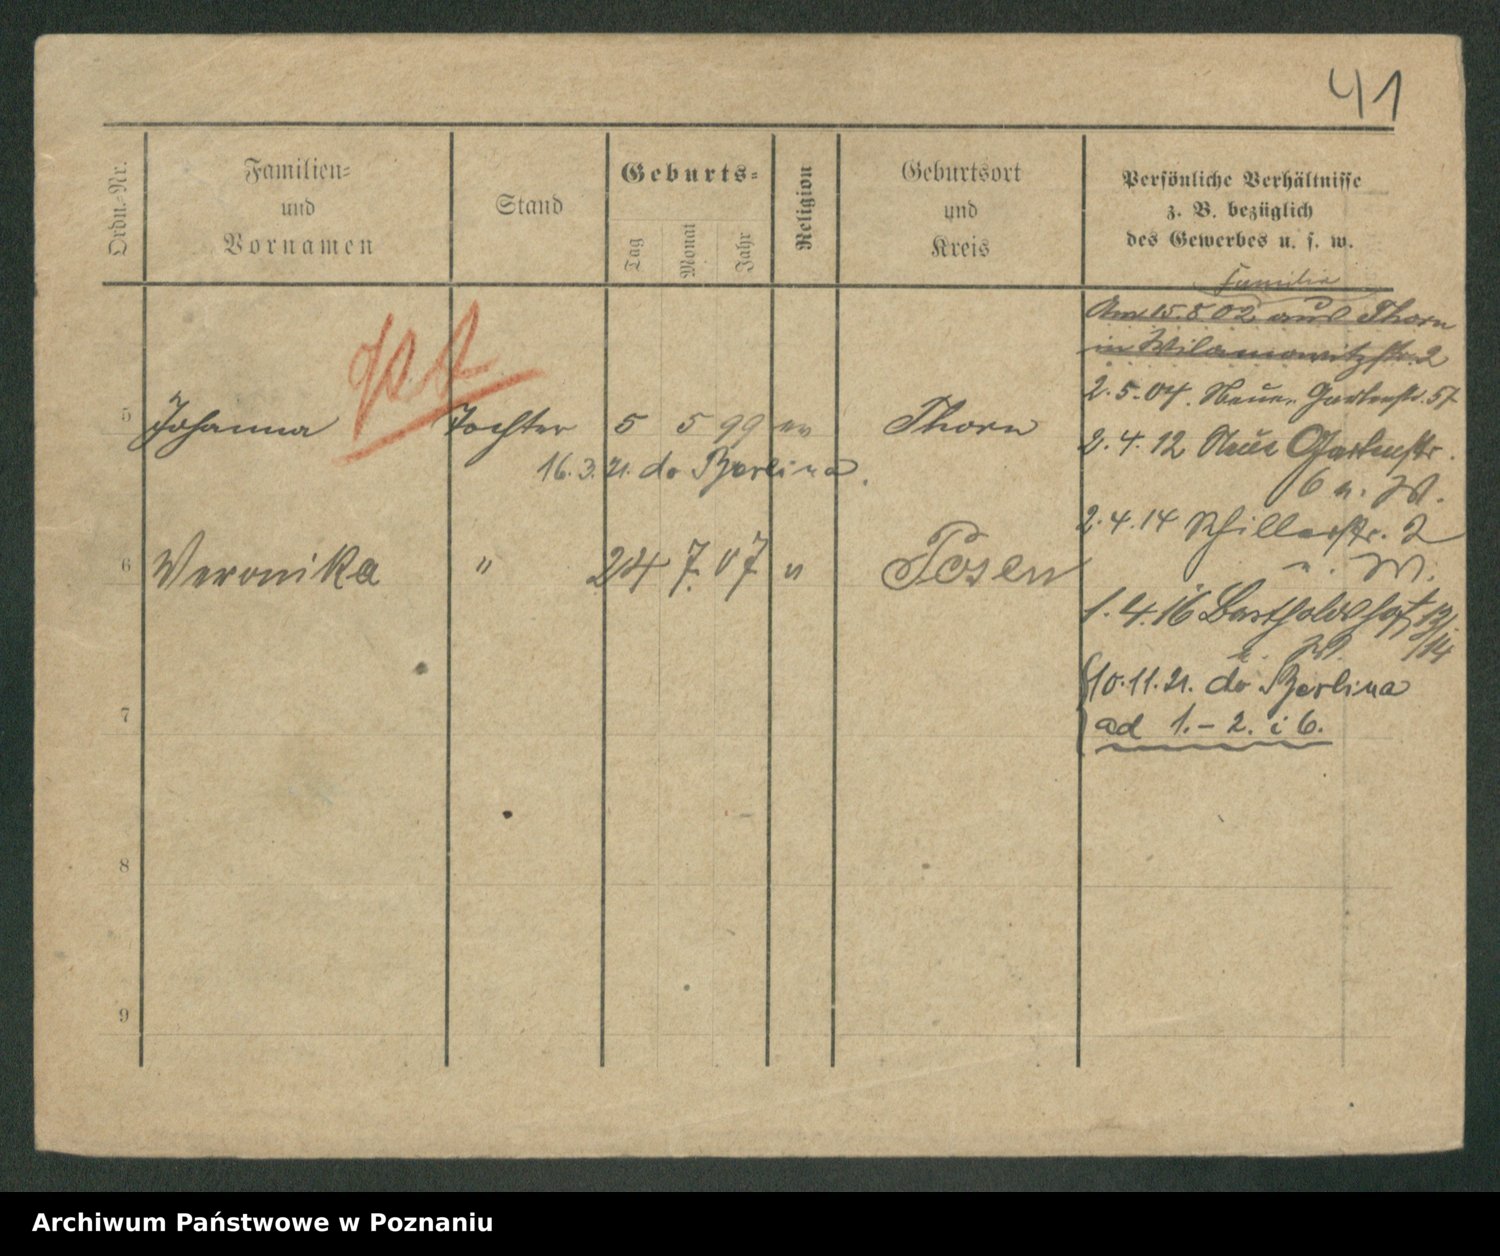 41
Ordn.-Nr.
Familien-
und
Vornamen
Stand
Geburts-
Tag
Monat
Jahr
Religion
Geburtsort
und
Kreis
Persönliche Verhältnisse
z. B. bezüglich
des Gewerbes u. s. w.
Familie
Am 15.8 02 aus Thorn
in Wilamowitzstr. 2
2.5.04. Neue Gartenstr. 57
5 Johanna Tochter 5 5 99 ev Thorn
2.4.12 Neue Gartenstr.
16.3.21. do Berlina.
6 u. W.
2.4.14 Schillerstr. 2
u. W.
6 Veronika " 24 7. 07 " Posen
1.4.16 Bartholdshof 13/14
u. W.
10.11.21. do Berlina
ad 1.-2. i 6.
7
8
9
Archiwum Państwowe w Poznaniu